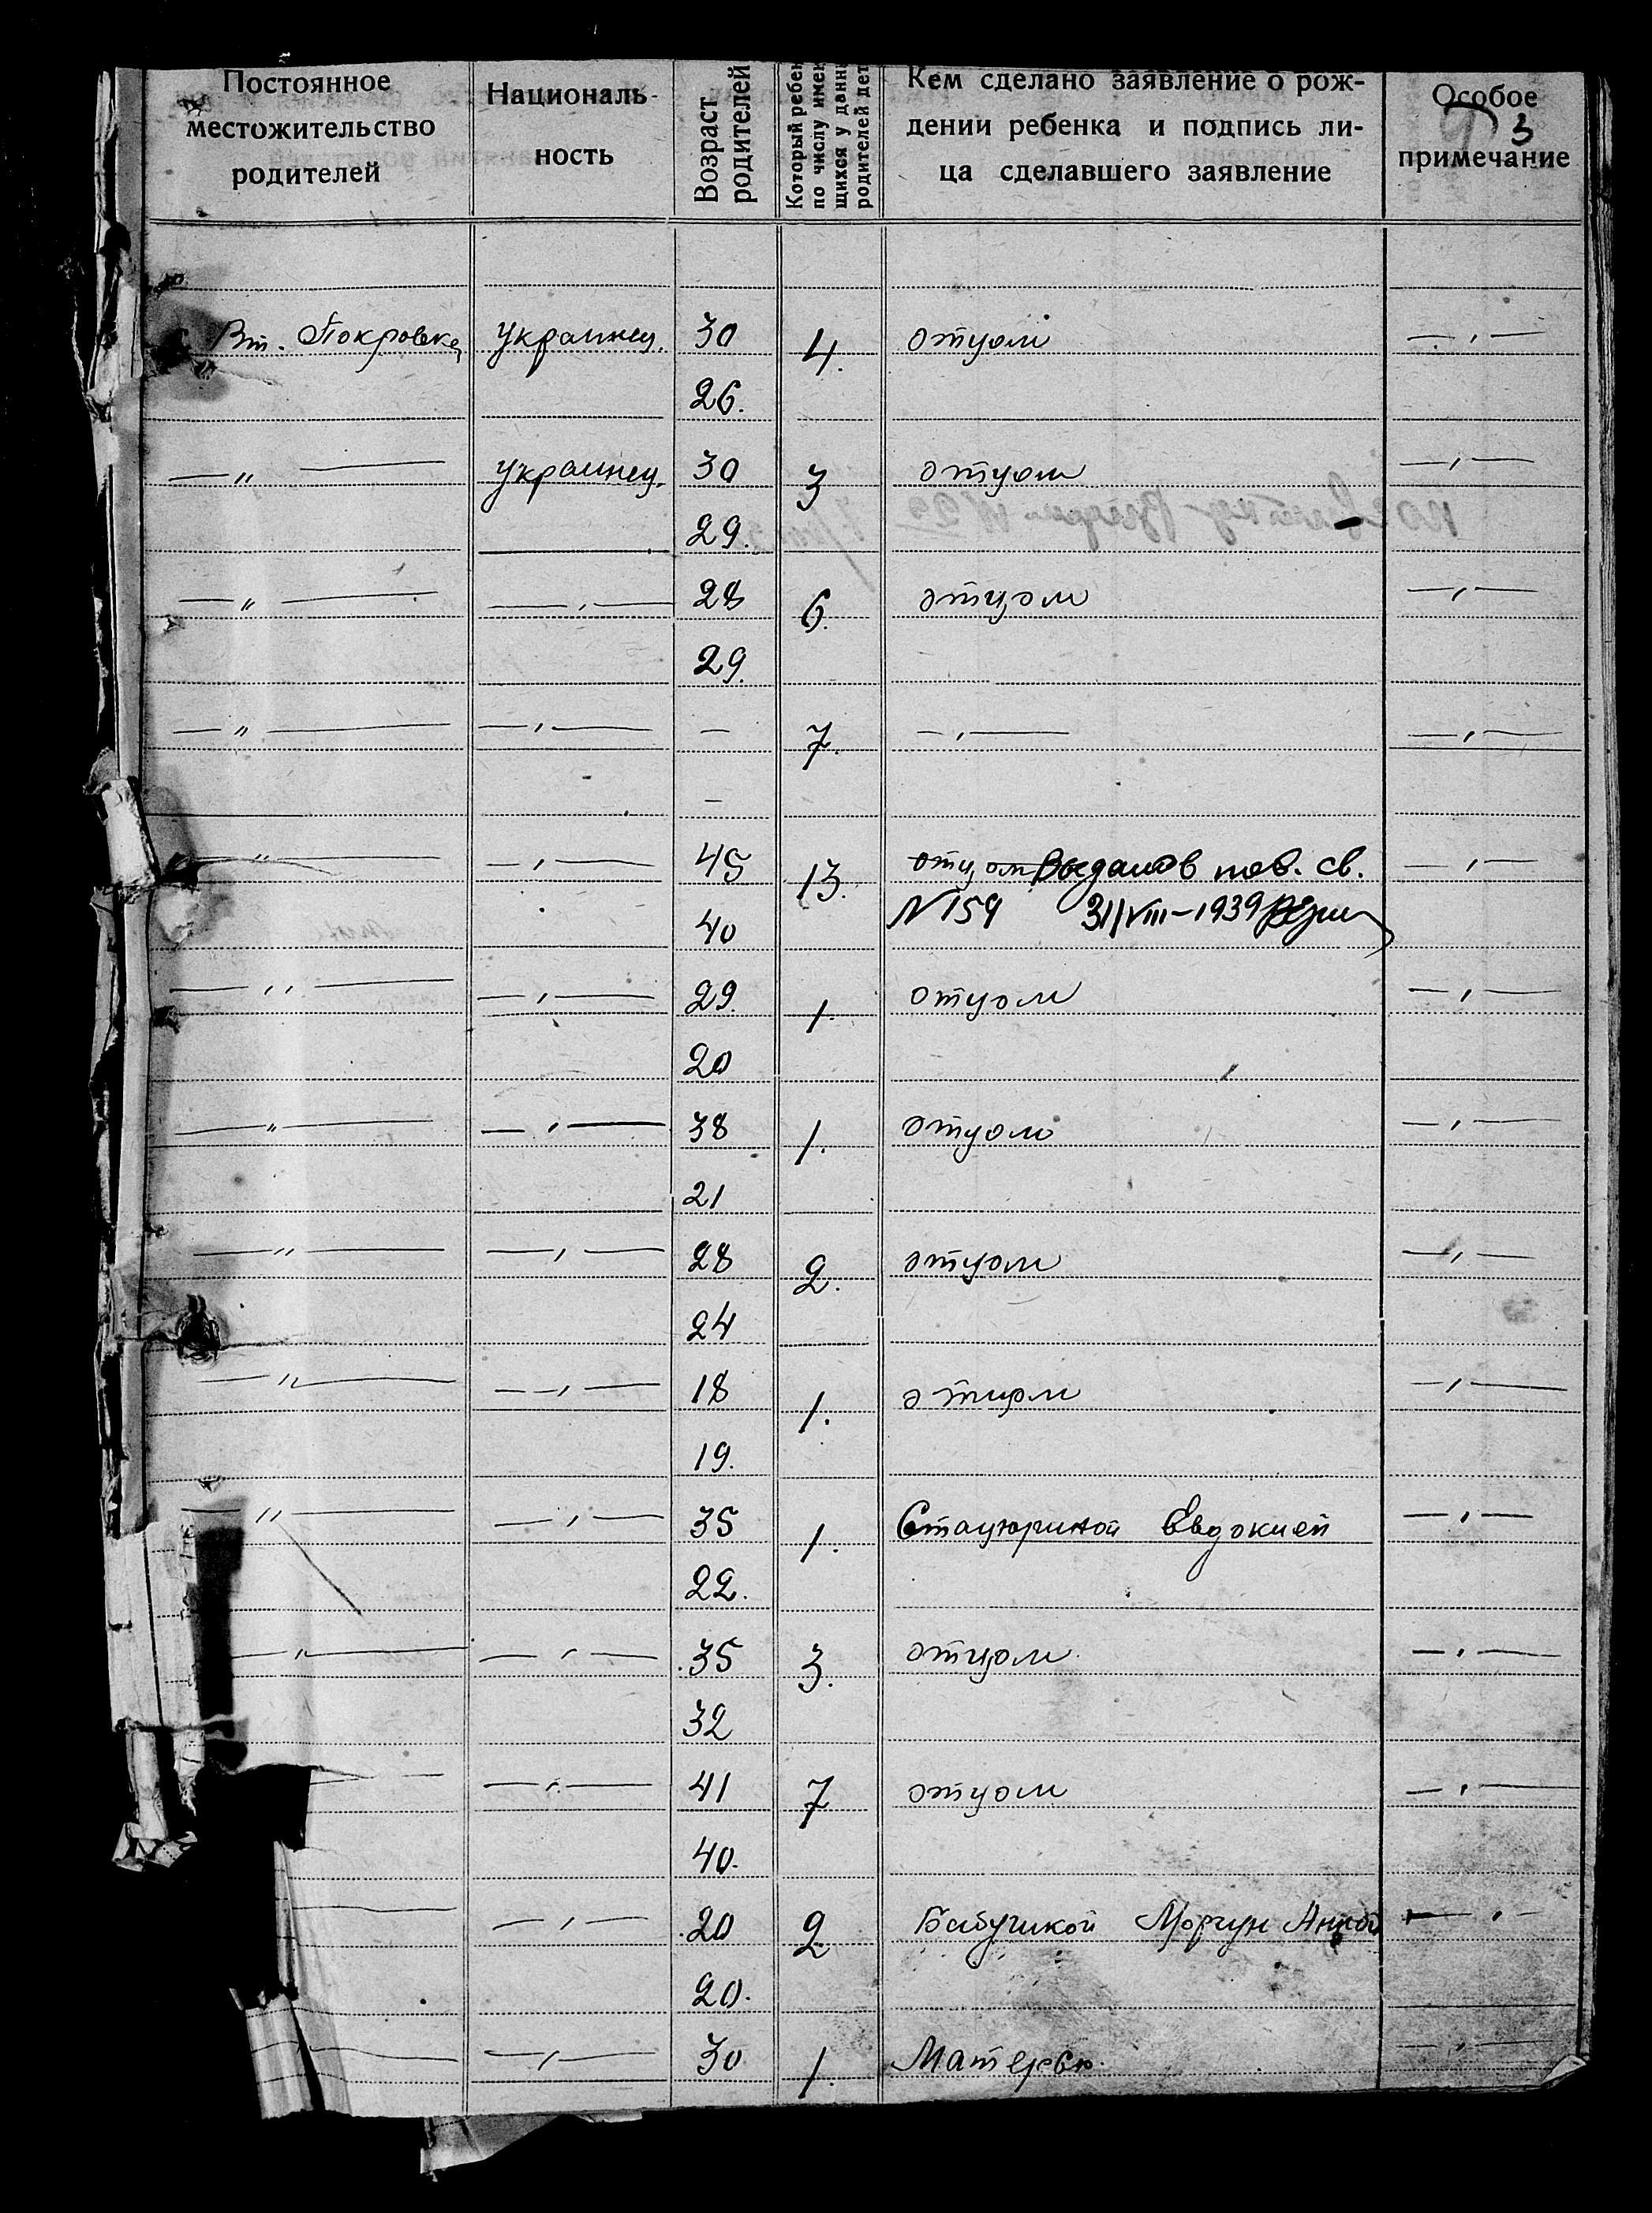 Постоянное
местожительство
родителей
Националь-
ность
Возраст
родителей
Который ребен
по числу имею
щихся у данны
родителей дет
Кем сделано заявление о рож-
дении ребенка и подпись ли-
ца сделавшего заявление
Особое
примечание
3
Вт. Покровка украинец. 30 4. отцом — „ —
26.
— „ — украинец. 30 3 отцом — „ —
29.
— „ — — „ — 28 6. отцом — „ —
29.
— „ — — „ — — 7. — „ — — „ —
—
— „ — — „ — 45 13. отцом Выдано пов. св. — „ —
40 N 159 31/VIII-1939
— „ — — „ — 29. 1. отцом — „ —
20
— „ — — „ — 38 1. отцом — „ —
21
— „ — — „ — 28 2. отцом — „ —
24
— „ — — „ — 18 1. отцом — „ —
19.
— „ — — „ — 35 1. Стацюриной Евдокией — „ —
22.
— „ — — „ — 35 3. отцом — „ —
32
— — — „ — 41 7 отцом — „ —
40.
— — „ — 20 2 Бабушкой Моргун Анной — „ —
20.
— — „ — 30 1. Матерью. — „ —